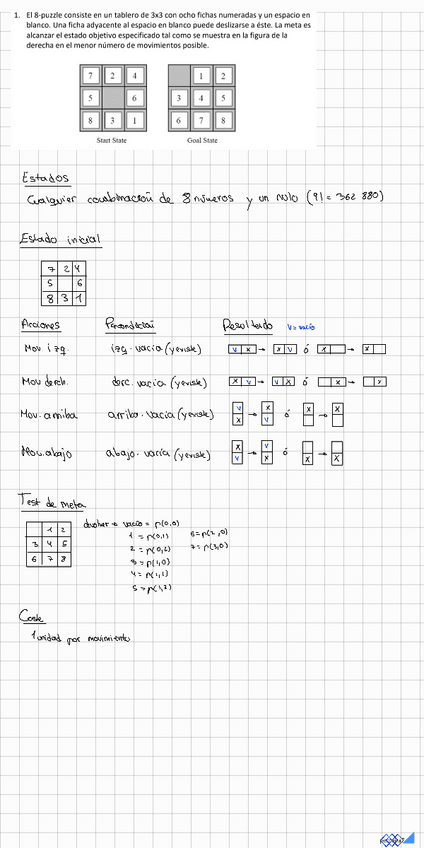 1. El 8-puzzle consiste en un tablero de 3x3 con ocho fichas numeradas y un espacio en
blanco. Una ficha adyacente al espacio en blanco puede deslizarse a éste. La meta es
alcanzar el estado objetivo especificado tal como se muestra en la figura de la
derecha en el menor número de movimientos posible.
7 2 4
5 6
8 3 1
Start State
1 2
3 4 5
6 7 8
Goal State
Estados
Cualquier combinación de 8 números y un nulo (9! = 362 880)
Estado inicial
7 2 4
5 6
8 3 1
Acciones Precondición Resultado V=vacío
Mov. izq. izq. vacía (y existe) V X → X V ó X → X
Mov derch. derc. vacía (y existe) X V → V X ó X → X
Mov. arriba arriba. vacía (y existe) V X → X V ó X → X
Mov. abajo abajo. vacía (y existe) X V → V X ó X → X
Test de meta
1 2
3 4 5
6 7 8
vacío = p(0,0)
1 = p(0,1)
2 = p(0,2)
3 = p(1,0)
4 = p(1,1)
5 = p(1,2)
7 = p(3,0)
Coste
1 unidad por movimiento